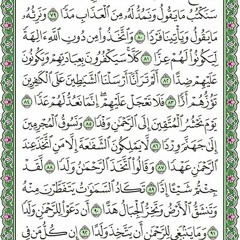 سَنَكْتُبُ مَا يَقُولُ وَنَمُدُّ لَهُۥ مِنَ ٱلْعَذَابِ مَدًّا ٧٩ وَنَرِثُهُۥ
مَا يَقُولُ وَيَأْتِينَا فَرْدًا ٨٠ وَٱتَّخَذُوا۟ مِن دُونِ ٱللَّهِ ءَالِهَةً
لِّيَكُونُوا۟ لَهُمْ عِزًّا ٨١ كَلَّا ۚ سَيَكْفُرُونَ بِعِبَادَتِهِمْ وَيَكُونُونَ
عَلَيْهِمْ ضِدًّا ٨٢ أَلَمْ تَرَ أَنَّآ أَرْسَلْنَا ٱلشَّيَـٰطِينَ عَلَى ٱلْكَـٰفِرِينَ
تَؤُزُّهُمْ أَزًّا ٨٣ فَلَا تَعْجَلْ عَلَيْهِمْ ۖ إِنَّمَا نَعُدُّ لَهُمْ عَدًّا ٨٤
يَوْمَ نَحْشُرُ ٱلْمُتَّقِينَ إِلَى ٱلرَّحْمَـٰنِ وَفْدًا ٨٥ وَنَسُوقُ ٱلْمُجْرِمِينَ
إِلَىٰ جَهَنَّمَ وِرْدًا ٨٦ لَّا يَمْلِكُونَ ٱلشَّفَـٰعَةَ إِلَّا مَنِ ٱتَّخَذَ عِندَ
ٱلرَّحْمَـٰنِ عَهْدًا ٨٧ وَقَالُوا۟ ٱتَّخَذَ ٱلرَّحْمَـٰنُ وَلَدًا ٨٨ لَّقَدْ
جِئْتُمْ شَيْـًٔا إِدًّا ٨٩ تَكَادُ ٱلسَّمَـٰوَٰتُ يَتَفَطَّرْنَ مِنْهُ
وَتَنشَقُّ ٱلْأَرْضُ وَتَخِرُّ ٱلْجِبَالُ هَدًّا ٩٠ أَن دَعَوْا۟ لِلرَّحْمَـٰنِ وَلَدًا
٩١ وَمَا يَنۢبَغِى لِلرَّحْمَـٰنِ أَن يَتَّخِذَ وَلَدًا ٩٢ إِن كُلُّ مَن فِى